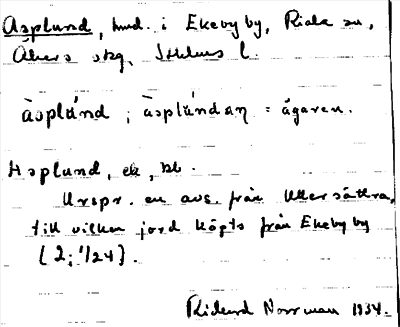 Asplund, hmd. i Ekeby by, Riala sn,
Åkers skg, Sthlms l.
àsplúnd ; àsplúndaη = ägaren.
Asplund, ek, bb.
Urspr. en avs. från Ullersättra,
till vilken jord köpts från Ekeby by
(2; 1/24).
Rickard Norrman 1934.